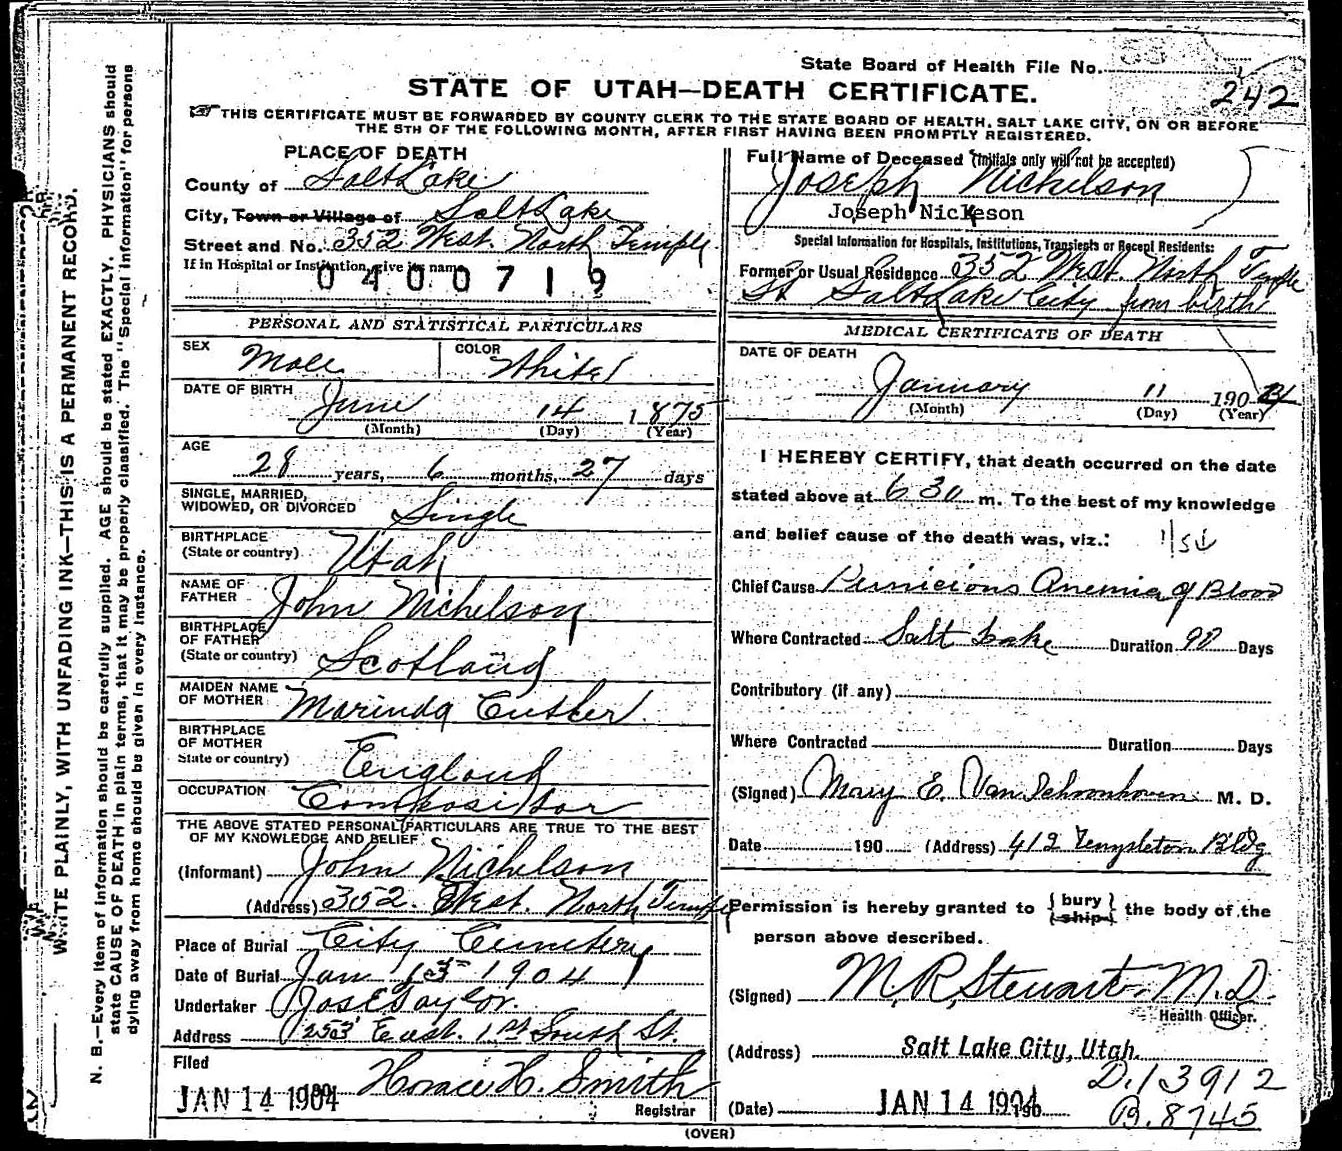 State Board of Health File No.
242
STATE OF UTAH—DEATH CERTIFICATE.
☞ THIS CERTIFICATE MUST BE FORWARDED BY COUNTY CLERK TO THE STATE BOARD OF HEALTH, SALT LAKE CITY, ON OR BEFORE
THE 5TH OF THE FOLLOWING MONTH, AFTER FIRST HAVING BEEN PROMPTLY REGISTERED.
PLACE OF DEATH
County of Salt Lake
City, Town or Village of Salt Lake
Street and No. 352 West. North Temple
If in Hospital or Institution, give its name
0400719
PERSONAL AND STATISTICAL PARTICULARS
SEX Male COLOR White
DATE OF BIRTH June 14 1875
(Month) (Day) (Year)
AGE
28 years, 6 months, 27 days
SINGLE, MARRIED,
WIDOWED, OR DIVORCED Single
BIRTHPLACE
(State or country) Utah
NAME OF
FATHER John Nichelson
BIRTHPLACE
OF FATHER
(State or country) Scotland
MAIDEN NAME
OF MOTHER Marinda Cutler
BIRTHPLACE
OF MOTHER
State or country) England
OCCUPATION Compositor
THE ABOVE STATED PERSONAL PARTICULARS ARE TRUE TO THE BEST
OF MY KNOWLEDGE AND BELIEF
(Informant) John Nichelson
(Address) 352. West. North Temple
Place of Burial City Cemetery
Date of Burial Jan 13th 1904
Undertaker Jos E Taylor.
Address 253 East. 1st South St.
Filed
JAN 14 1904 Horace H. Smith
Registrar
Full Name of Deceased (Initials only will not be accepted)
Joseph Nickelson
Joseph Nickeson
Special Information for Hospitals, Institutions, Transients or Recent Residents:
Former or Usual Residence 352 West. North Temple
St Salt Lake City from birth
MEDICAL CERTIFICATE OF DEATH
DATE OF DEATH
January 11 1904
(Month) (Day) (Year)
I HEREBY CERTIFY, that death occurred on the date
stated above at 6 30 m. To the best of my knowledge
and belief cause of the death was, viz.:
Chief Cause Pernicious Anemia of Blood
Where Contracted Salt Lake Duration 90 Days
Contributory (if any)
Where Contracted Duration Days
(Signed) Mary E. Van Schoonhoven M. D.
Date 190 (Address) 412 Templeton Bldg
Permission is hereby granted to { bury ship } the body of the
person above described.
(Signed) M. R. Stewart M.D.
Health Officer.
(Address) Salt Lake City, Utah.
D.13912
(Date) JAN 14 1904
B.8745
(OVER)
WRITE PLAINLY, WITH UNFADING INK—THIS IS A PERMANENT RECORD.
N. B.—Every item of information should be carefully supplied. AGE should be stated EXACTLY. PHYSICIANS should
state CAUSE OF DEATH in plain terms, that it may be properly classified. The "Special Information" for persons
dying away from home should be given in every instance.